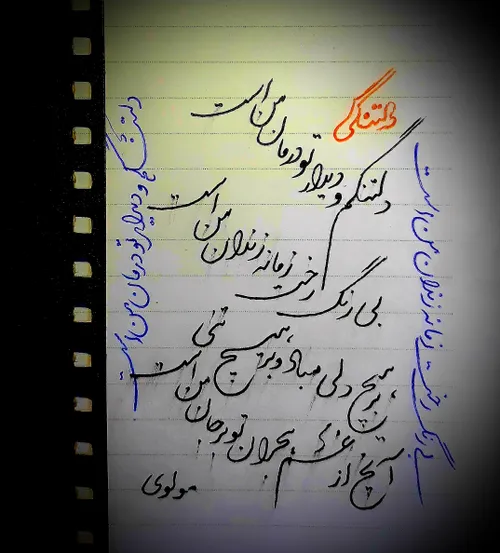 دلتنگی
دلتنگم و دیدار تو درمان من است
بی رنگ رخت زمانه زندان من است
بر هیچ دلی مباد و بر هیچ تنی
آنچ از غم هجران تو بر جان من است
مولوی
دلتنگم و دیدار تو درمان من است
بی رنگ رخت زمانه زندان من است